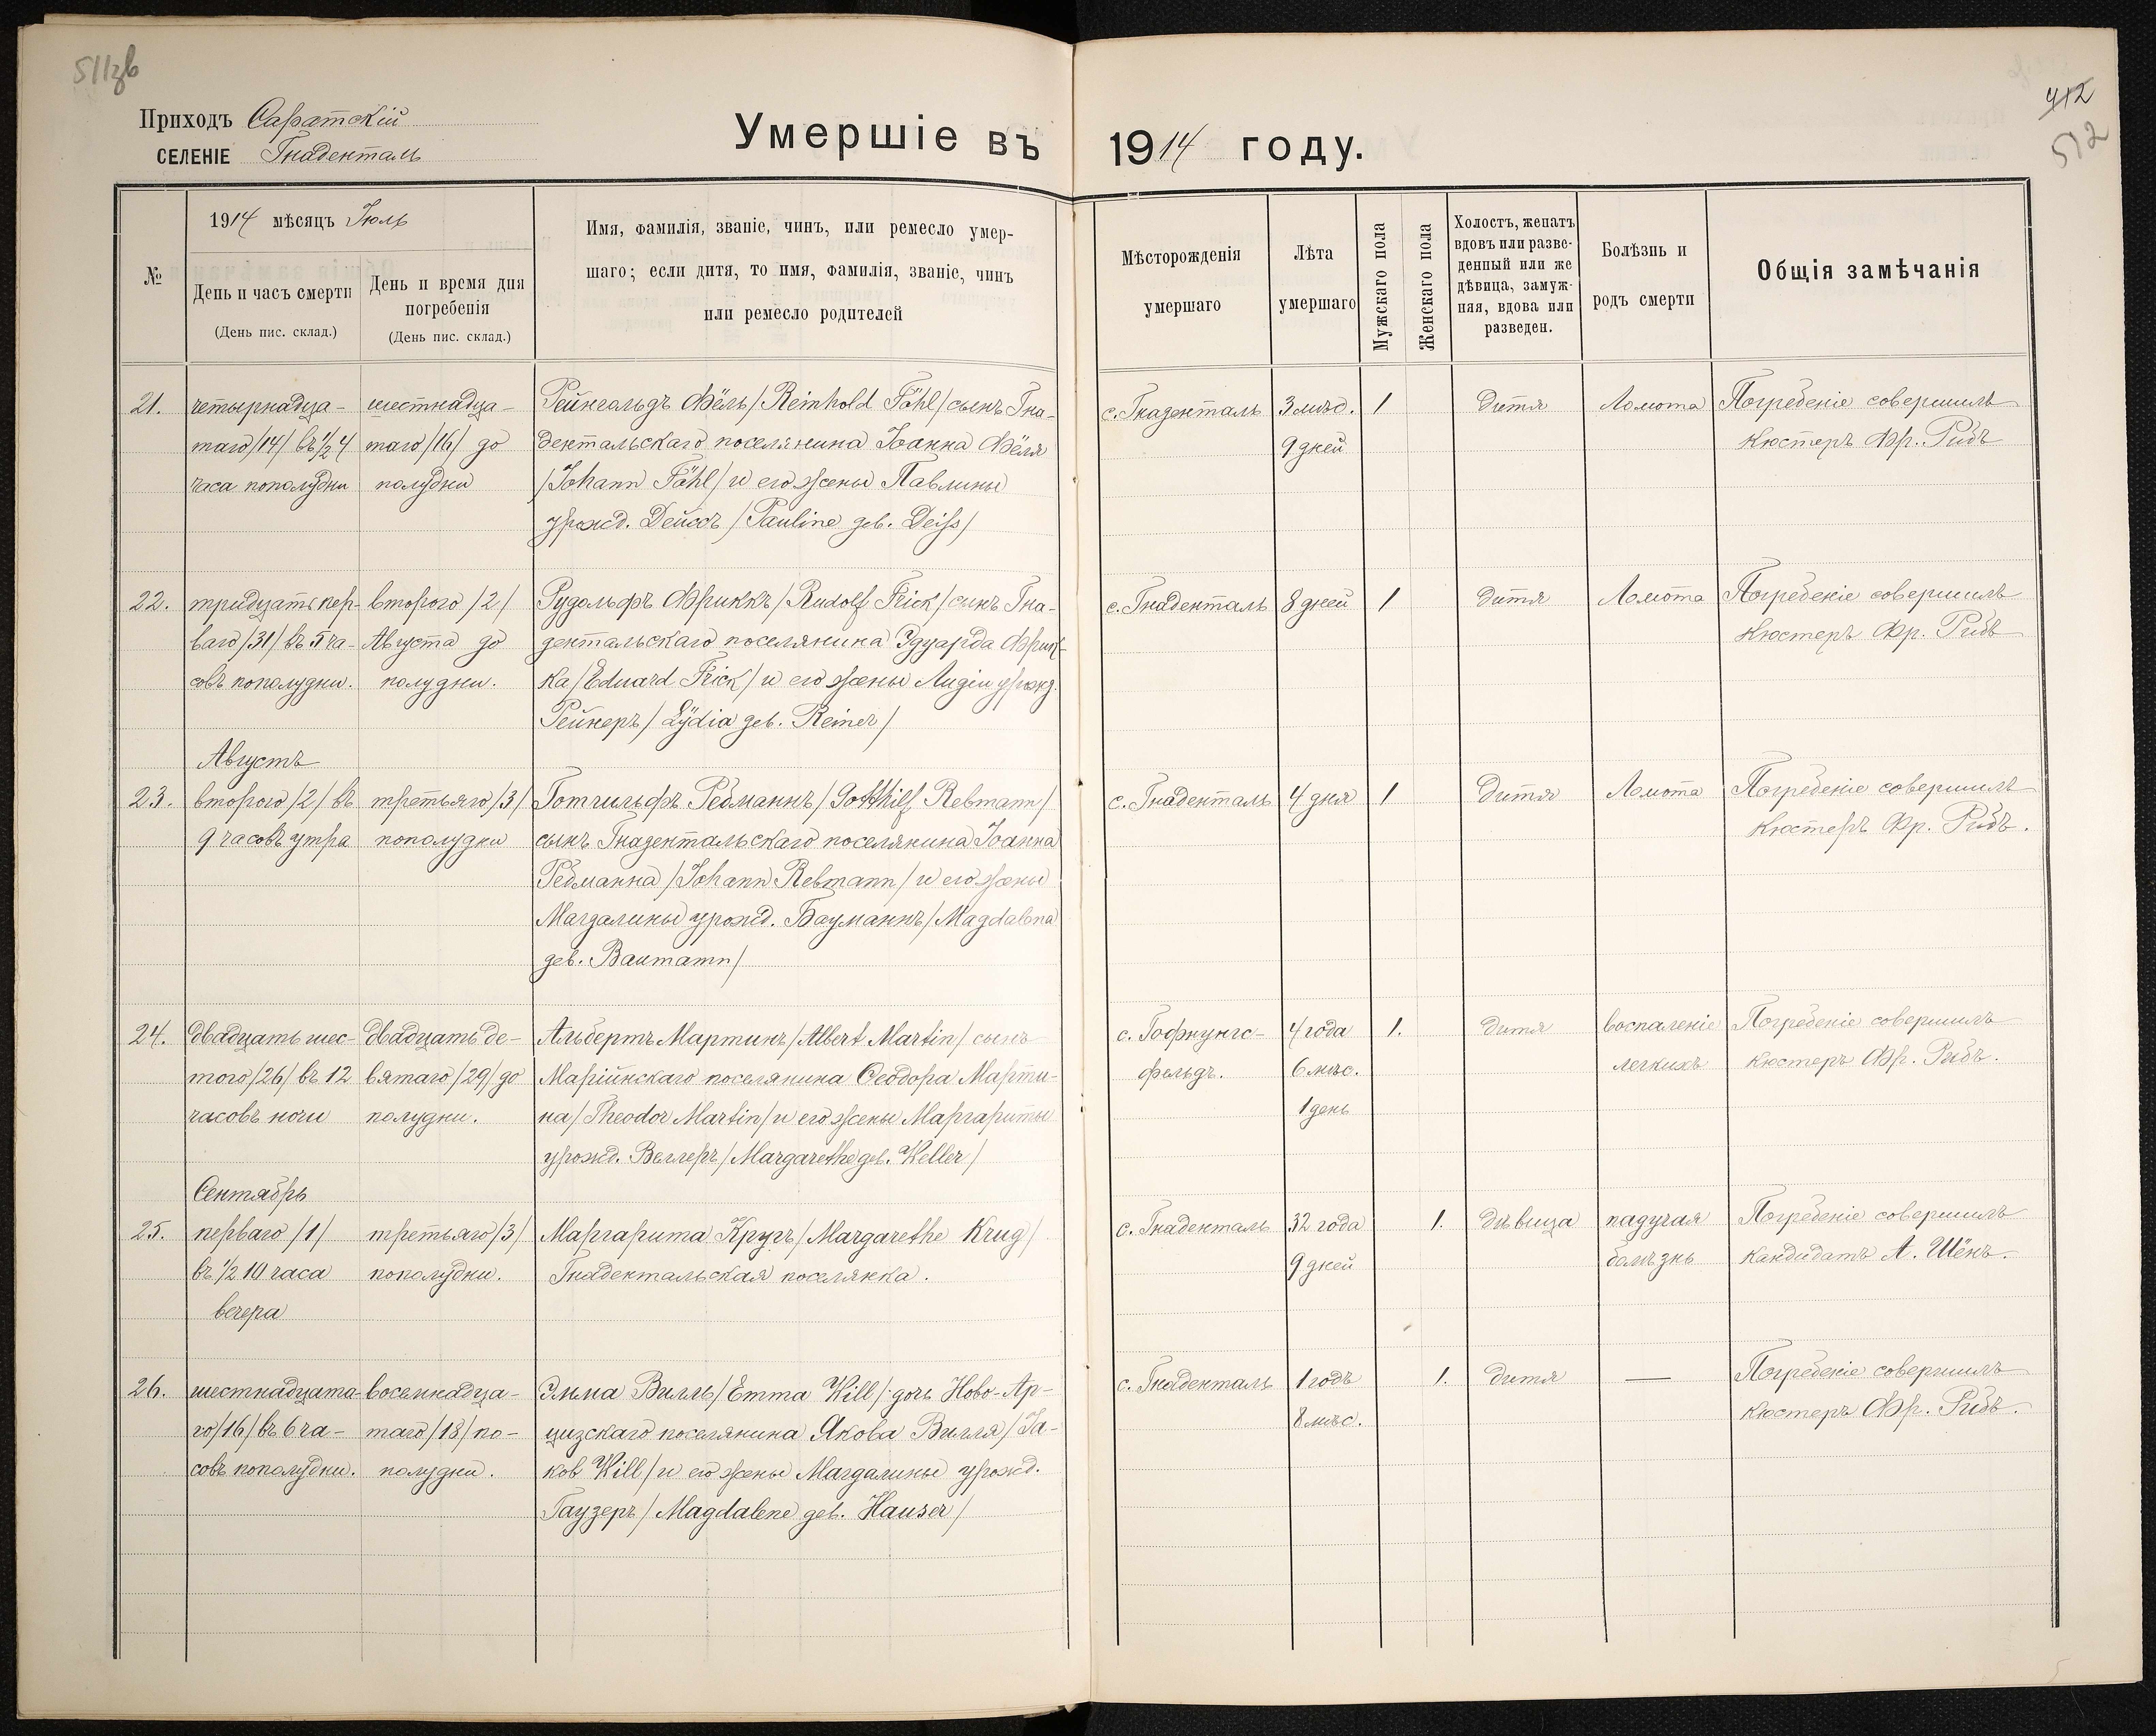 511зв
412
512
Приходъ Саратскій
СЕЛЕНІЕ Гнаденталь
Умершіе въ 1914 году.
№
1914 мѣсяцъ Іюль
День и часъ смерти
(День пис. склад.)
День и время дня
погребенія
(День пис. склад.)
Имя, фамилія, званіе, чинъ, или ремесло умер-
шаго; если дитя, то имя, фамилія, званіе, чинъ
или ремесло родителей
Мѣсторожденія
умершаго
Лѣта
умершаго
Мужскаго пола
Женскаго пола
Холостъ, женатъ
вдовъ или разве-
денный или же
дѣвица, замуж-
няя, вдова или
разведен.
Болѣзнь и
родъ смерти
Общія замѣчанія
21.
четырнадца-
таго /14/ въ 1/2 4
часа пополудни
шестнадца-
таго /16/ до
полудни
Рейнгольдъ Фёль /Reinhold Föhl/ сынъ Гна-
дентальскаго поселянина Іоанна Фёля
/Johann Föhl/ и его жены Павлины
урожд. Дейссъ /Pauline geb. Deiss/
с. Гнаденталь
3 мѣс.
9 дней
1
дитя
Ломота
Погребеніе совершилъ
Кюстеръ Фр. Рибъ
22.
тридцать пер-
ваго /31/ въ 5 ча-
совъ пополудни.
второго /2/
Августа до
полудни.
Рудольфъ Фриккъ /Rudolf Frick/ сынъ Гна-
дентальскаго поселянина Эдуарда Фрик-
ка /Eduard Frick/ и его жены Лидіи урожд.
Рейнеръ /Lydia geb. Reiner/
с. Гнаденталь
8 дней
1
дитя
Ломота
Погребеніе совершилъ
Кюстеръ Фр. Рибъ
Августъ
23.
второго /2/ въ
9 часовъ утра
третьяго /3/
пополудни
Готгильфъ Ребманнъ /Gotthilf Rebmann/
сынъ Гнадентальскаго поселянина Іоанна
Ребманна /Johann Rebmann/ и его жены
Магдалины урожд. Бауманнъ /Magdalena
geb. Baumann/
с. Гнаденталь
4 дня
1
Дитя
Ломота
Погребеніе совершилъ
Кюстеръ Фр. Рибъ.
24.
двадцать шес-
того /26/ въ 12
часовъ ночи
двадцать де-
вятаго /29/ до
полудни.
Альбертъ Мартинъ /Albert Martin/ сынъ
Маріинскаго поселянина Ѳеодора Марти-
на /Theodor Martin/ и его жены Маргариты
урожд. Веллеръ /Margarethe geb. Weller/
с. Гофнунгс-
фельдъ.
4 года
6 мѣс.
1 день
1.
дитя
воспаленіе
легкихъ
Погребеніе совершилъ
кюстеръ Фр. Рибъ.
Сентябрь
25.
перваго /1/
въ 1/2 10 часа
вечера
третьяго /3/
пополудни.
Маргарита Кругъ /Margarethe Krug/
Гнадентальская поселянка.
с. Гнаденталь
32 года
9 дней
1.
дѣвица
падучая
болѣзнь
Погребеніе совершилъ
Кандидатъ А. Шёнъ.
26.
шестнадцата-
го /16/ въ 6 ча-
совъ пополудни.
восемнадца-
таго /18/ по-
полудни.
Эмма Вилль /Emma Will/ дочь Ново-Ар-
цизскаго поселянина Якова Вилля /Ja-
kob Will/ и его жены Магдалины урожд.
Гаузеръ /Magdalene geb. Hauser/
с. Гнаденталь
1 годъ
8 мѣс.
1.
дитя
—
Погребеніе совершилъ
кюстеръ Фр. Рибъ.